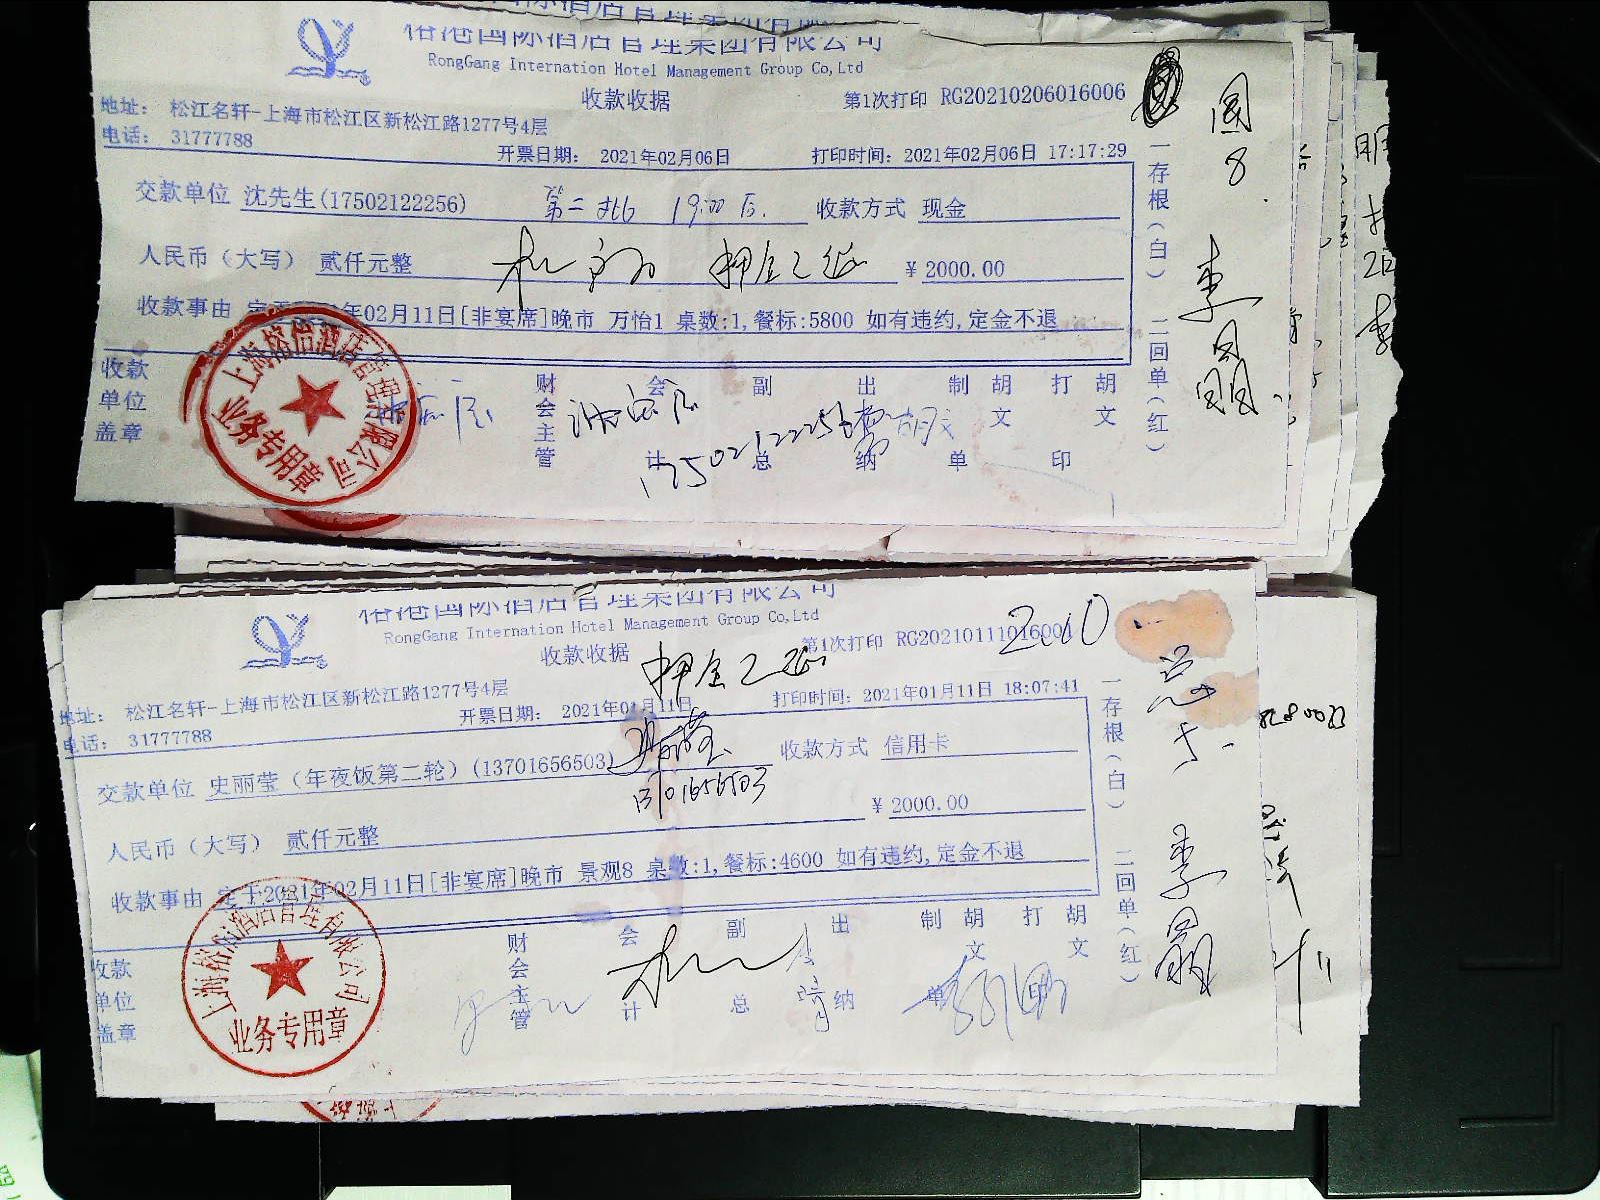 榕港国际酒店管理集团有限公司
RongGang Internation Hotel Management Group Co,Ltd
收款收据
第1次打印 RG20210206016006
地址: 松江名轩-上海市松江区新松江路1277号4层
电话: 31777788
开票日期: 2021年02月06日
打印时间: 2021年02月06日 17:17:29
交款单位 沈先生(17502122256)
第二批 19:00后.
收款方式 现金
人民币(大写) 贰仟元整
押金已
¥ 2000.00
收款事由 定于 年02月11日[非宴席]晚市 万怡1 桌数:1,餐标:5800 如有违约,定金不退
收款单位盖章
财会主管
会计
副总
出纳
制单 胡文
打印 胡文
17502122256
一存根(白) 二回单(红)
圆
8
李
上海榕怡酒店管理有限公司
业务专用章
榕港国际酒店管理集团有限公司
RongGang Internation Hotel Management Group Co,Ltd
收款收据
第1次打印 RG20210111016001
押金已
地址: 松江名轩-上海市松江区新松江路1277号4层
电话: 31777788
开票日期: 2021年01月11日
打印时间: 2021年01月11日 18:07:41
交款单位 史丽莹(年夜饭第二轮)(13701656503)
收款方式 信用卡
13701656503
人民币(大写) 贰仟元整
¥ 2000.00
收款事由 定于2021年02月11日[非宴席]晚市 景观8 桌数:1,餐标:4600 如有违约,定金不退
收款单位盖章
财会主管
会计
副总
出纳
制单 胡文
打印 胡文
一存根(白) 二回单(红)
李
上海榕怡酒店管理有限公司
业务专用章